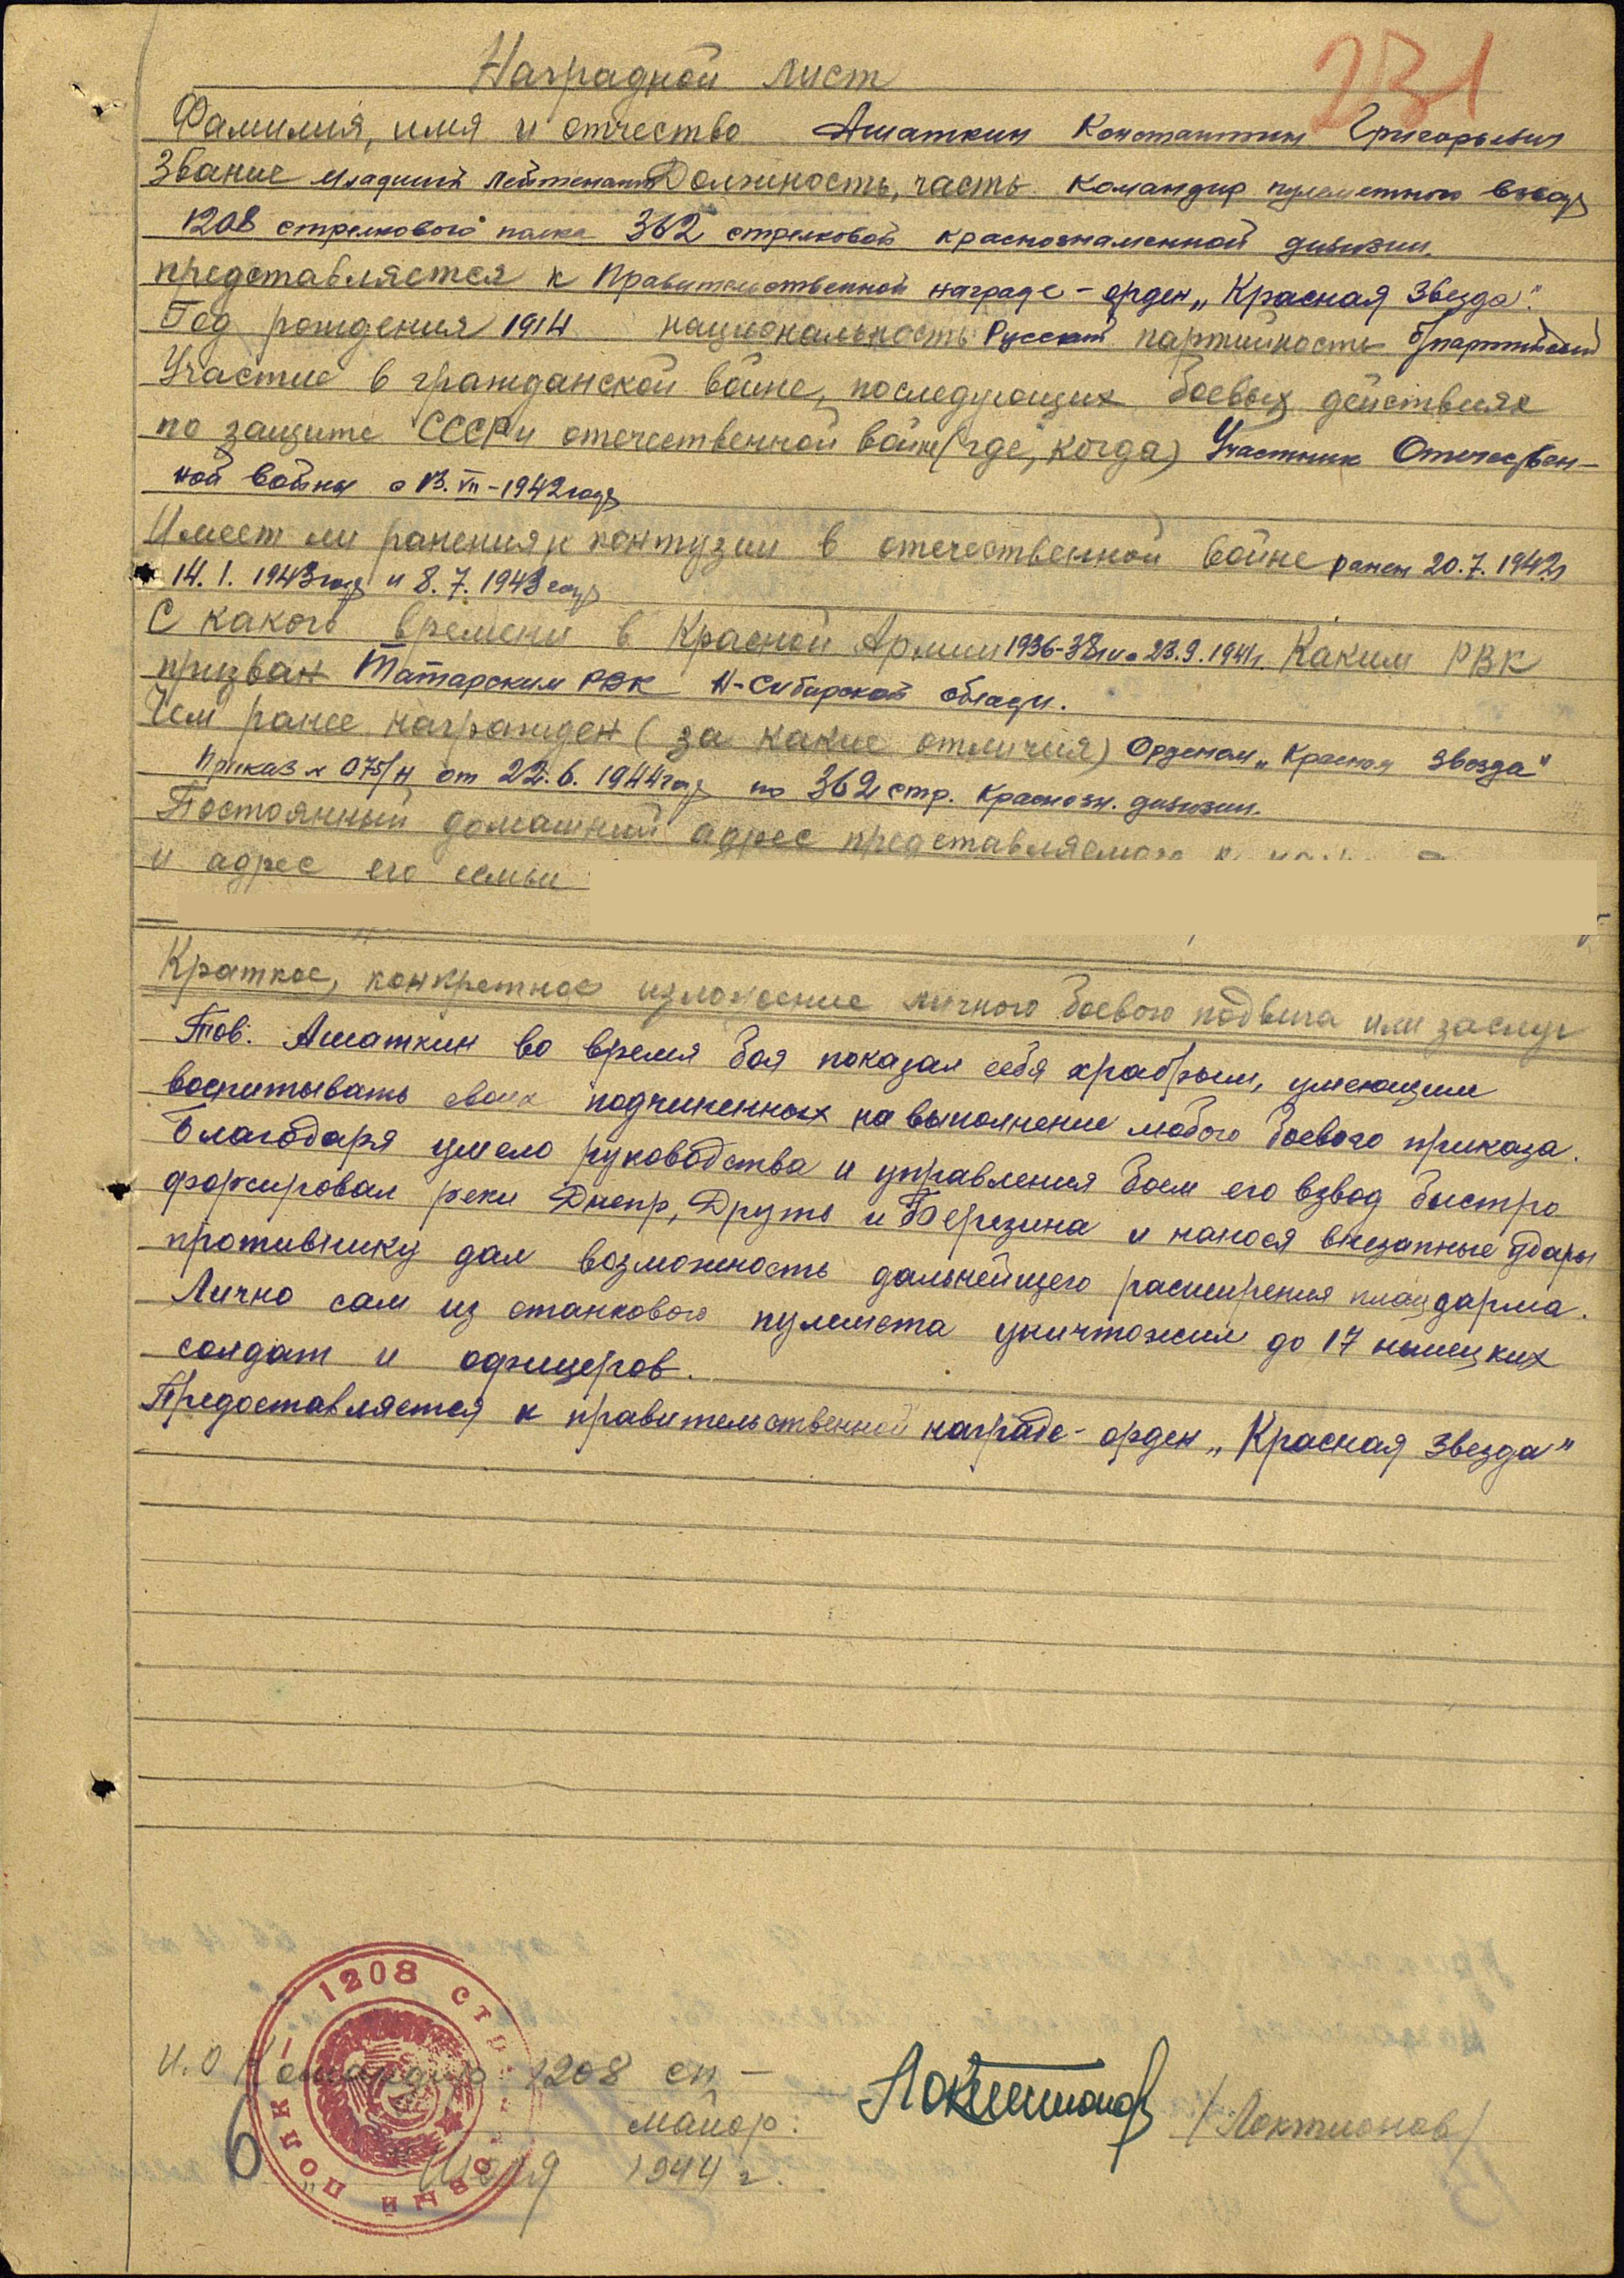 231
Наградной лист
Фамилия, имя и отчество Ашаткин Константин Григорьевич
Звание младший лейтенант Должность, часть командир пулеметного взвода
1208 стрелкового полка 362 стрелковой краснознаменной дивизии.
представляется к Правительственной награде - орден „Красная Звезда".
Год рождения 1914 национальность Русский партийность б/партийный
Участие в гражданской войне, последующих боевых действиях
по защите СССР и отечественной войне (где, когда) Участник Отечествен-
ной войны с 13.VII-1942 года
Имеет ли ранения и контузии в отечественной войне ранен 20.7.1942г
14.1.1943 года и 8.7.1943 года
С какого времени в Красной Армии 1936-38 и с 23.9.1941г. Каким РВК
призван Татарским РВК Н-Сибирской области.
Чем ранее награжден (за какие отличия) Орденом „Красная Звезда"
Приказ № 075/н от 22.6.1944 года по 362 стр. Краснозн. дивизии.
Постоянный домашний адрес представляемого к
и адрес его семьи
Краткое, конкретное изложение личного боевого подвига или заслуг
Тов. Ашаткин во время боя показал себя храбрым, умеющим
воспитывать своих подчиненных на выполнение любого боевого приказа.
Благодаря умело руководства и управления боем его взвод быстро
форсировал реки Днепр, Друть и Березина и нанося внезапные удары
противнику дал возможность дальнейшего расширения плацдарма.
Лично сам из станкового пулемета уничтожил до 17 немецких
солдат и офицеров.
Предоставляется к правительственной награде - орден „Красная Звезда"
1208 СТР ОВЫЙ ПОЛК
И.О Командир 1208 сп -
майор: Локтионов /Локтионов/
6 июля 1944 г.